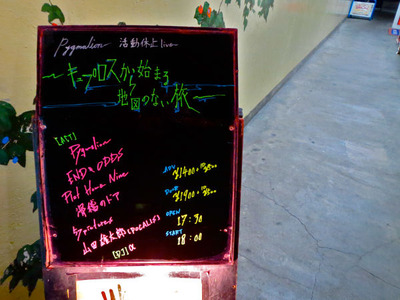 Pygmalion 活動休止live
〜キュプロスから始まる
地図のない旅〜
[ACT]
Pygmalion
END's ODDS
Plot Home Nine
滑稽のドア
山田雄太郎(POCALIS)
[DJ] α
ADV ¥1400
DOOR ¥1900
OPEN
17:30
START
18:00